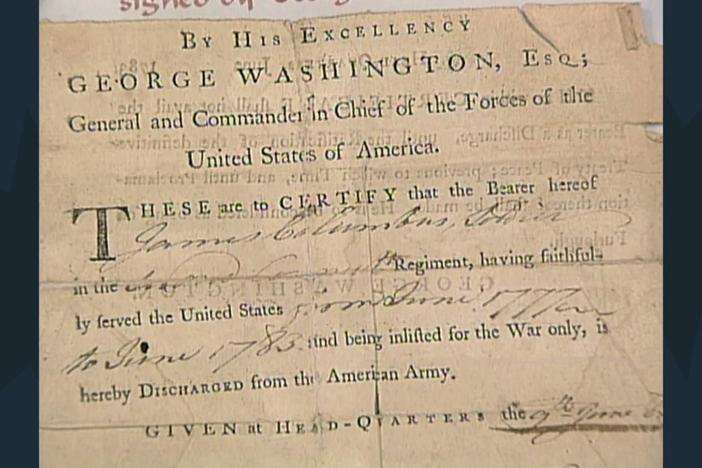 signed by Geo
BY HIS EXCELLENCY
GEORGE WASHINGTON, ESQ;
General and Commander in Chief of the Forces of the
United States of America.
THESE are to CERTIFY that the Bearer hereof
James Columbus, Soldier
in the Regiment, having faithful-
ly served the United States from June 1777
to June 1783. and being inlisted for the War only, is
hereby DISCHARGED from the American Army.
GIVEN at HEAD-QUARTERS the 9th June